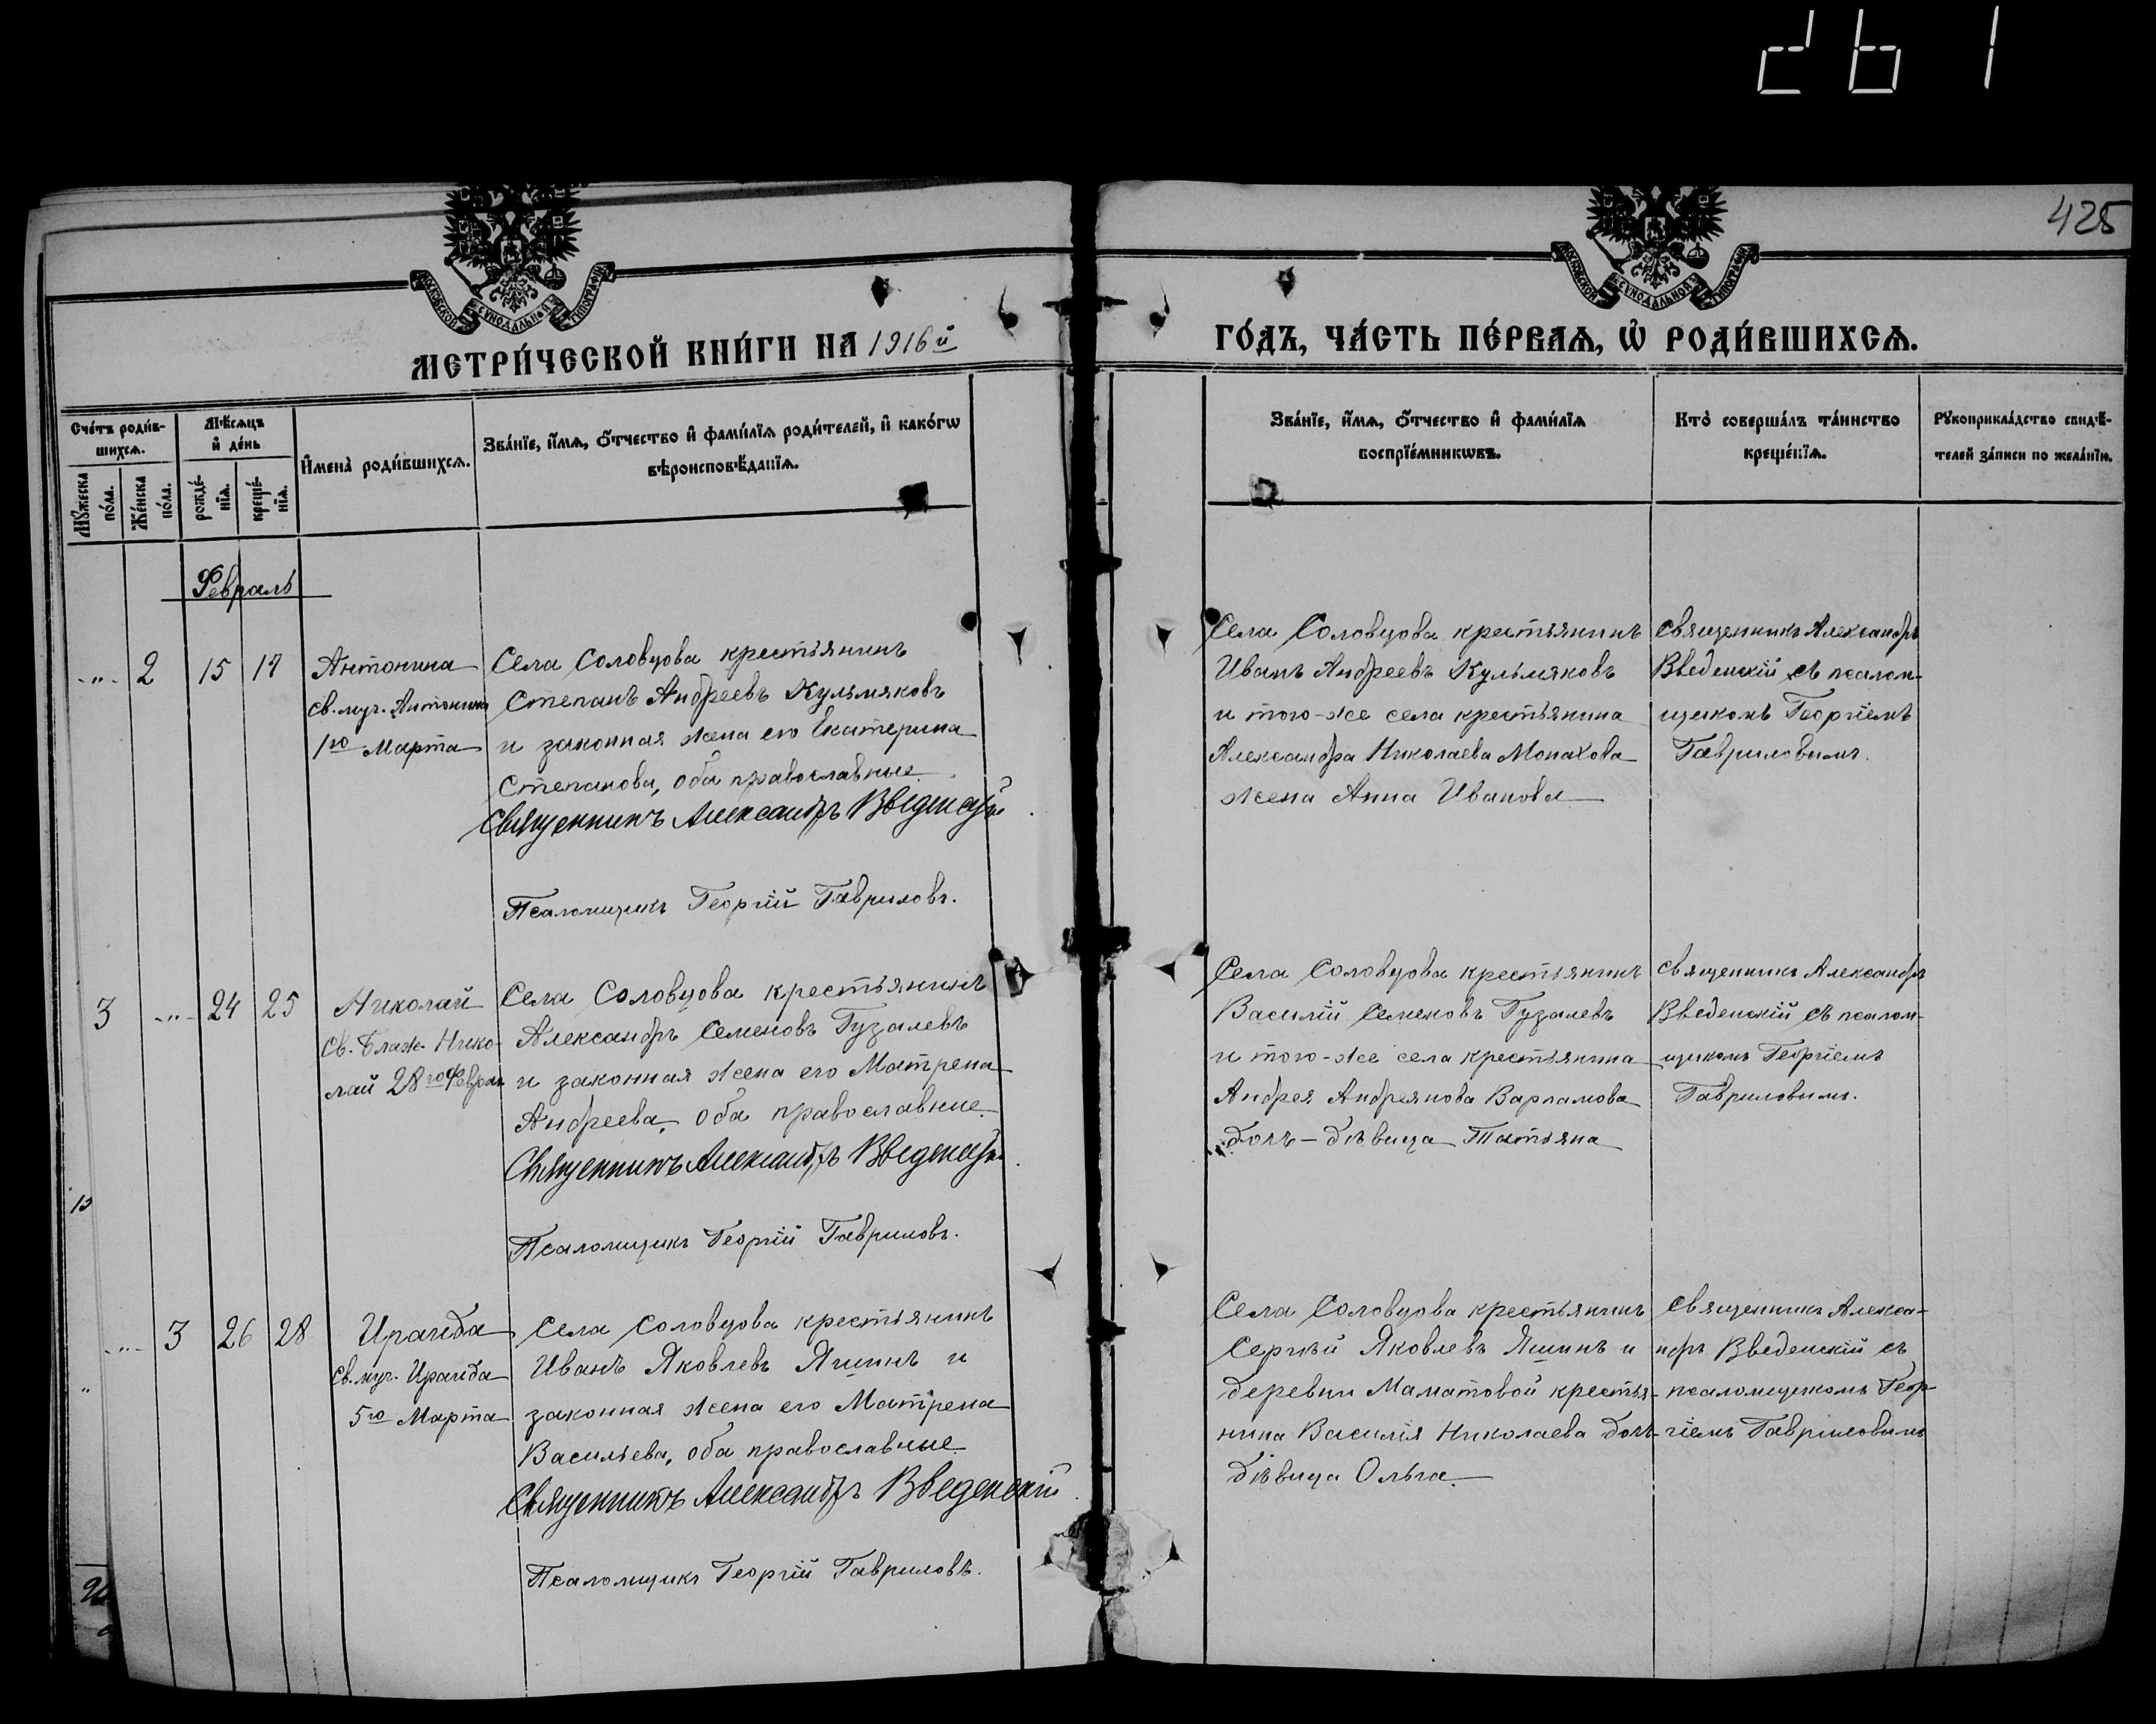 261
425
МОСКОВСКОЙ СѴНОДАЛЬНОЙ ТИПОГРАФІИ
МОСКОВСКОЙ СѴНОДАЛЬНОЙ ТИПОГРАФІИ
МЕТРИ́ЧЕСКОЙ КНИ́ГИ НА 1916й
ГО́ДЪ, ЧА́СТЬ ПЕ́РВАѦ, Ѿ РОДИ́ВШИХСѦ.
Сче́тъ роди́в-
шихсѧ.
Мꙋ́жеска
по́ла.
Же́нска
по́ла.
Мѣ́сѧцъ
и҆ де́нь
рожде́-
нїѧ.
креще́-
нїѧ.
И҆мена̀ роди́вшихсѧ.
Зва́нїе, и҆́мѧ, ѻ҆́тчество и҆ фами́лїѧ роди́телей, и҆ како́гѡ
вѣроисповѣ́данїѧ.
Зва́нїе, и҆́мѧ, ѻ҆́тчество и҆ фами́лїѧ
воспрїе́мникѡвъ.
Кто̀ соверша́лъ та́инство
креще́нїѧ.
Рꙋкоприкла́дство свидѣ́-
телей за́писи по жела́нїю.
Февраль
-„- 2 15 17
Антонина
св. муч. Антонина
1го Марта
Села Соловцова крестьянинъ
Степанъ Андреевъ Кульмяковъ
и законная жена его Екатерина
Степанова, оба православные.
Священникъ Александръ Введенскій
Псаломщикъ Георгій Гавриловъ.
Села Соловцова крестьянинъ
Иванъ Андреевъ Кульмяковъ
и того-же села крестьянина
Александра Николаева Монахова
жена Анна Иванова
Священникъ Александръ
Введенскій съ псалом-
щикомъ Георгіемъ
Гавриловымъ.
3 -„- 24 25
Николай
св. Блаж. Нико-
лай 28го Феврал
Села Соловцова крестьянинъ
Александръ Семеновъ Гузалевъ
и законная жена его Матрена
Андреева, оба православные.
Священникъ Александръ Введенскій
Псаломщикъ Георгій Гавриловъ.
Села Соловцова крестьянинъ
Василій Семеновъ Гузалевъ
и того-же села крестьянина
Андрея Андреянова Варламова
дочь-дѣвица Татьяна
Священникъ Александръ
Введенскій съ псалом-
щикомъ Георгіемъ
Гавриловымъ.
-„- 3 26 28
Ираида
св. муч. Ираида
5го Марта
Села Соловцова крестьянинъ
Иванъ Яковлевъ Яшинъ и
законная жена его Матрена
Васильева, оба православные.
Священникъ Александръ Введенскій
Псаломщикъ Георгій Гавриловъ.
Села Соловцова крестьянинъ
Сергѣй Яковлевъ Яшинъ и
деревни Маматовой крестья-
нина Василія Николаева дочь-
дѣвица Ольга
Священникъ Алекса-
ндръ Введенскій съ
псаломщикомъ Геор-
гіемъ Гавриловымъ